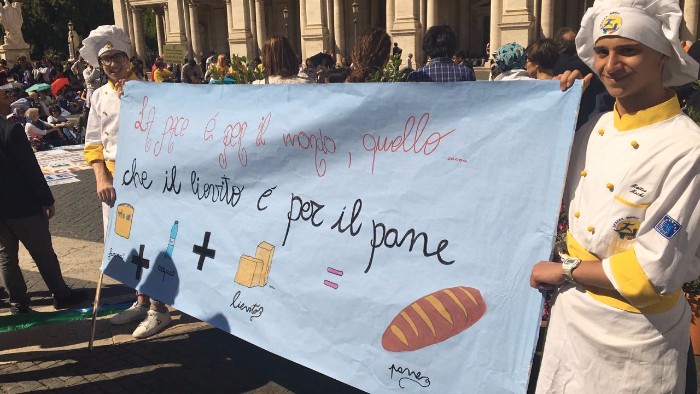 La pace é per il mondo, quello......
che il lievito é per il pane
+ + =
acqua
lievito
pane